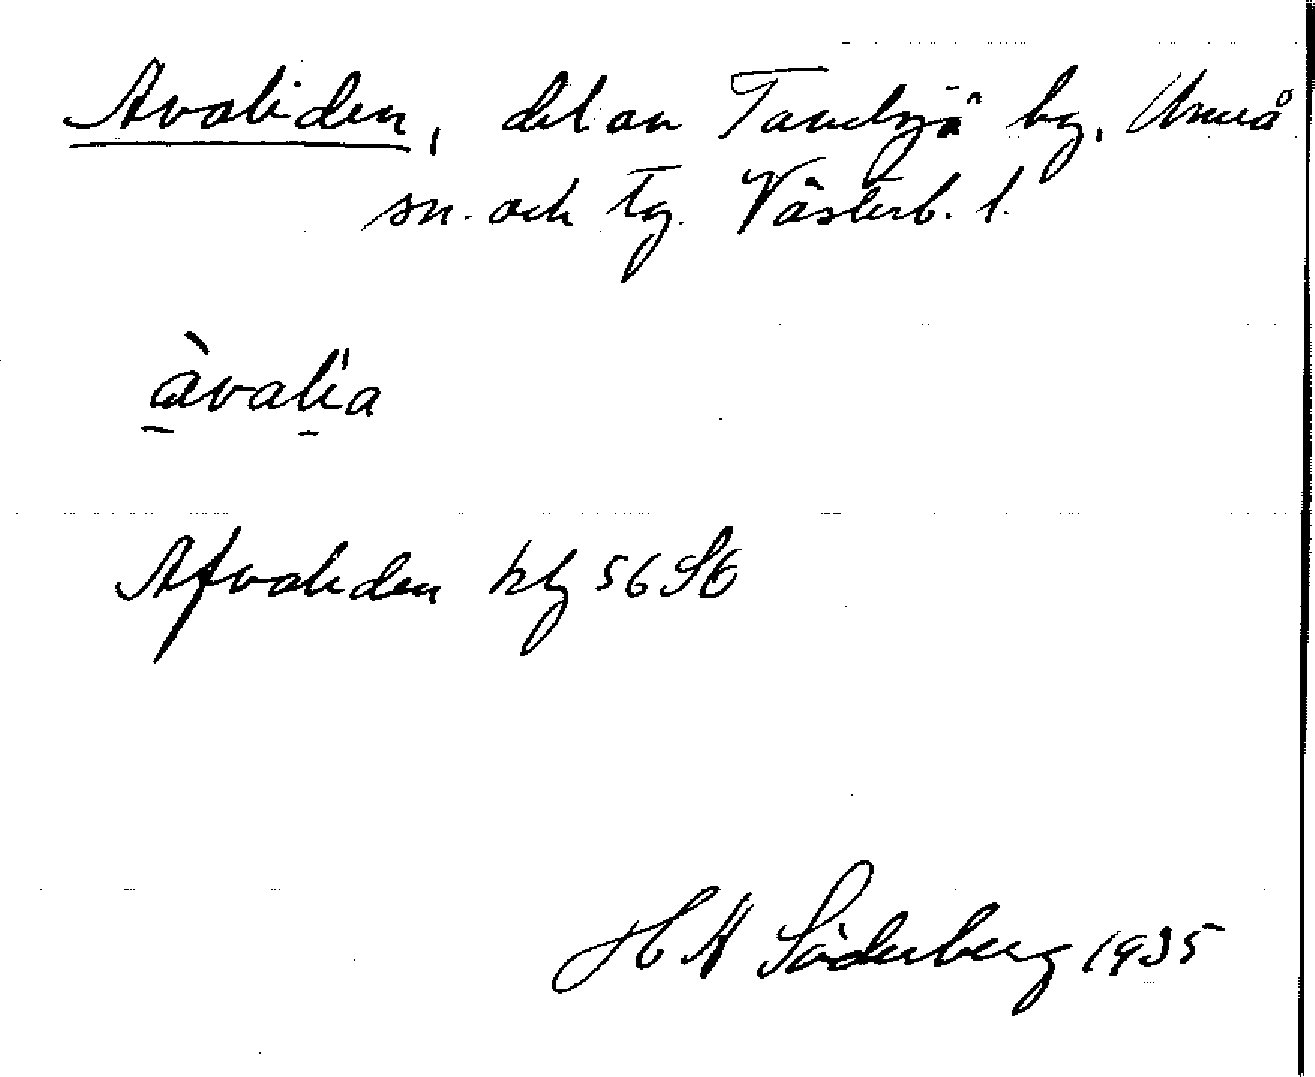 Avaliden, del av Tavelsjö by, Umeå
sn. och tg. Västerb. l.
àvalía
Afvaliden kbl 56 SO
H Söderberg 1935